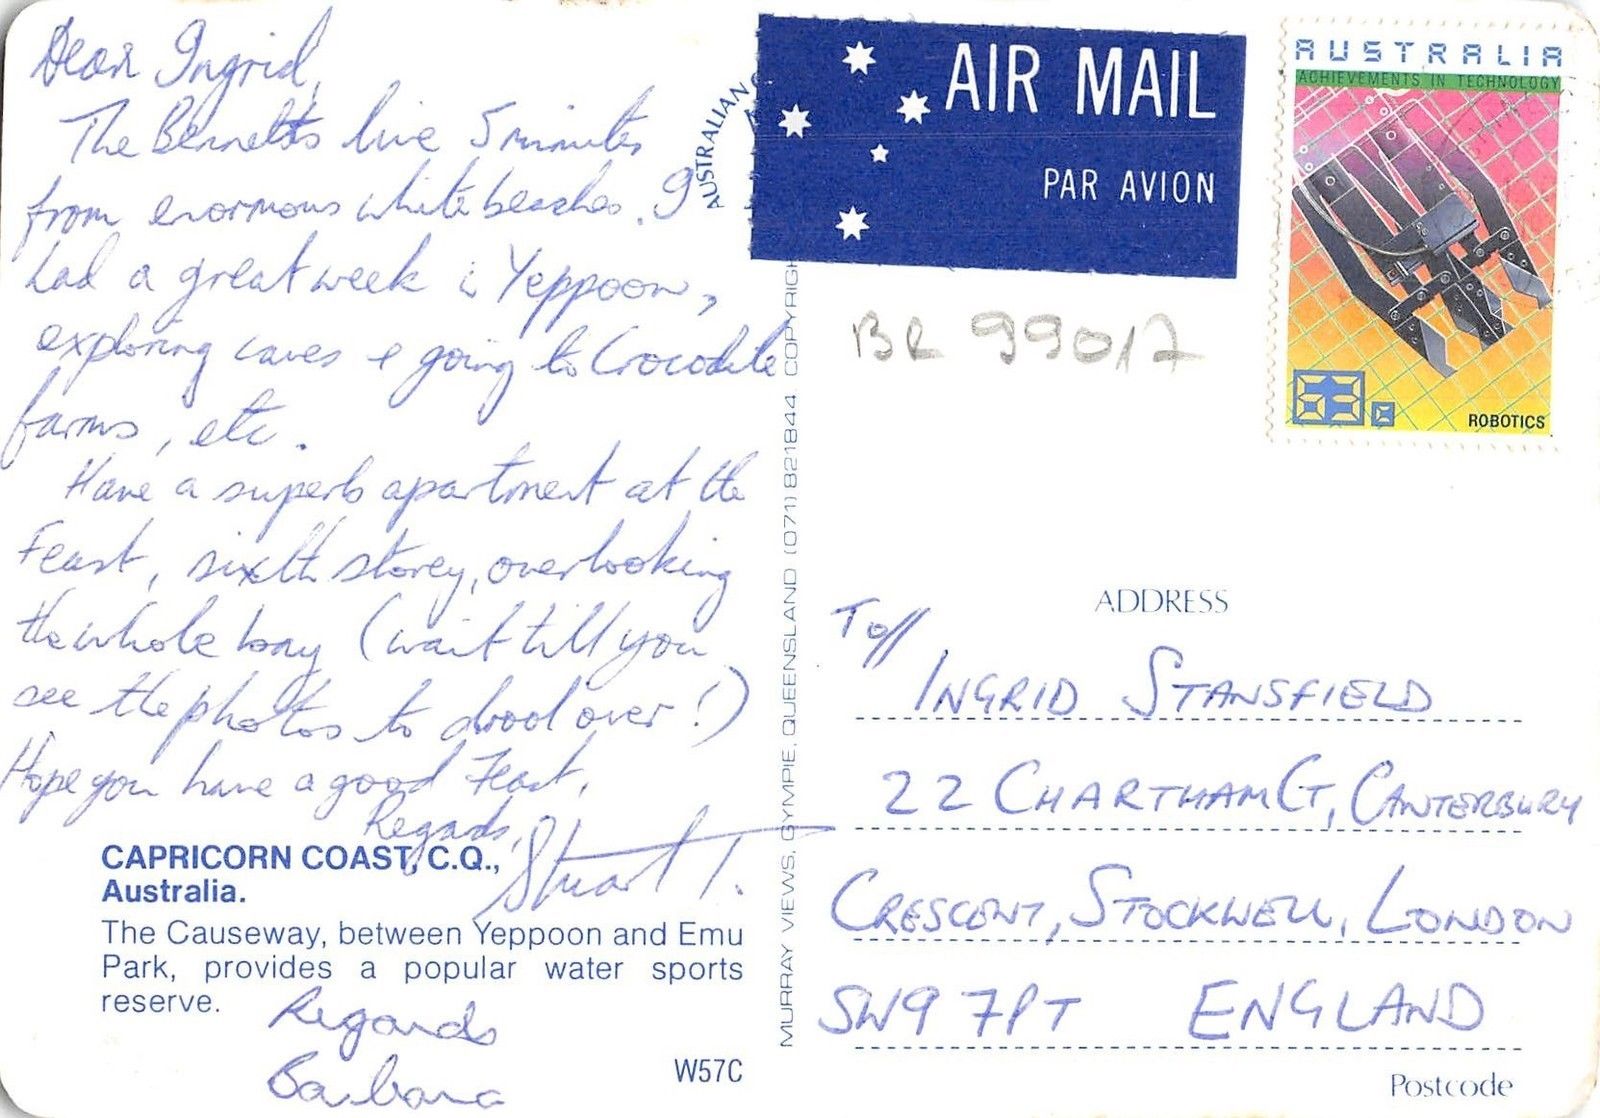 Dear Ingrid,
The Bennetts live 5 minutes
from enormous white beaches. I
had a great week in Yeppoon,
exploring caves & going to Crocodile
farms, etc.
Have a superb apartment at the
Feast, sixth storey, overlooking
the whole bay (wait till you
see the photos to drool over!)
Hope you have a good Feast.
Regards,
Stuart T.
CAPRICORN COAST, C.Q.,
Australia.
The Causeway, between Yeppoon and Emu
Park, provides a popular water sports
reserve.
Regards
Barbara
W57C
MURRAY VIEWS, GYMPIE, QUEENSLAND (071) 821844 COPYRIGH
AUSTRALIAN
AIR MAIL
PAR AVION
AUSTRALIA
ACHIEVEMENTS IN TECHNOLOGY
53c
ROBOTICS
BR 99017
ADDRESS
To//
INGRID STANSFIELD
22 CHARTHAM CT, CANTERBURY
CRESCENT, STOCKWELL, LONDON
SW9 7PT ENGLAND
Postcode